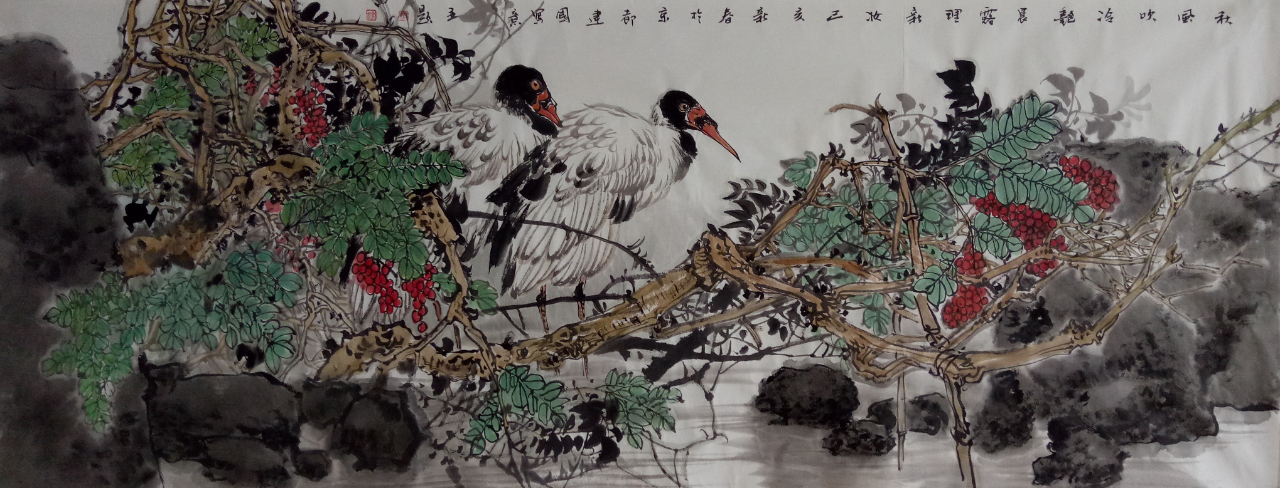 秋風吹冷艷晨露理新妝己亥新春於京都建國寫意並題